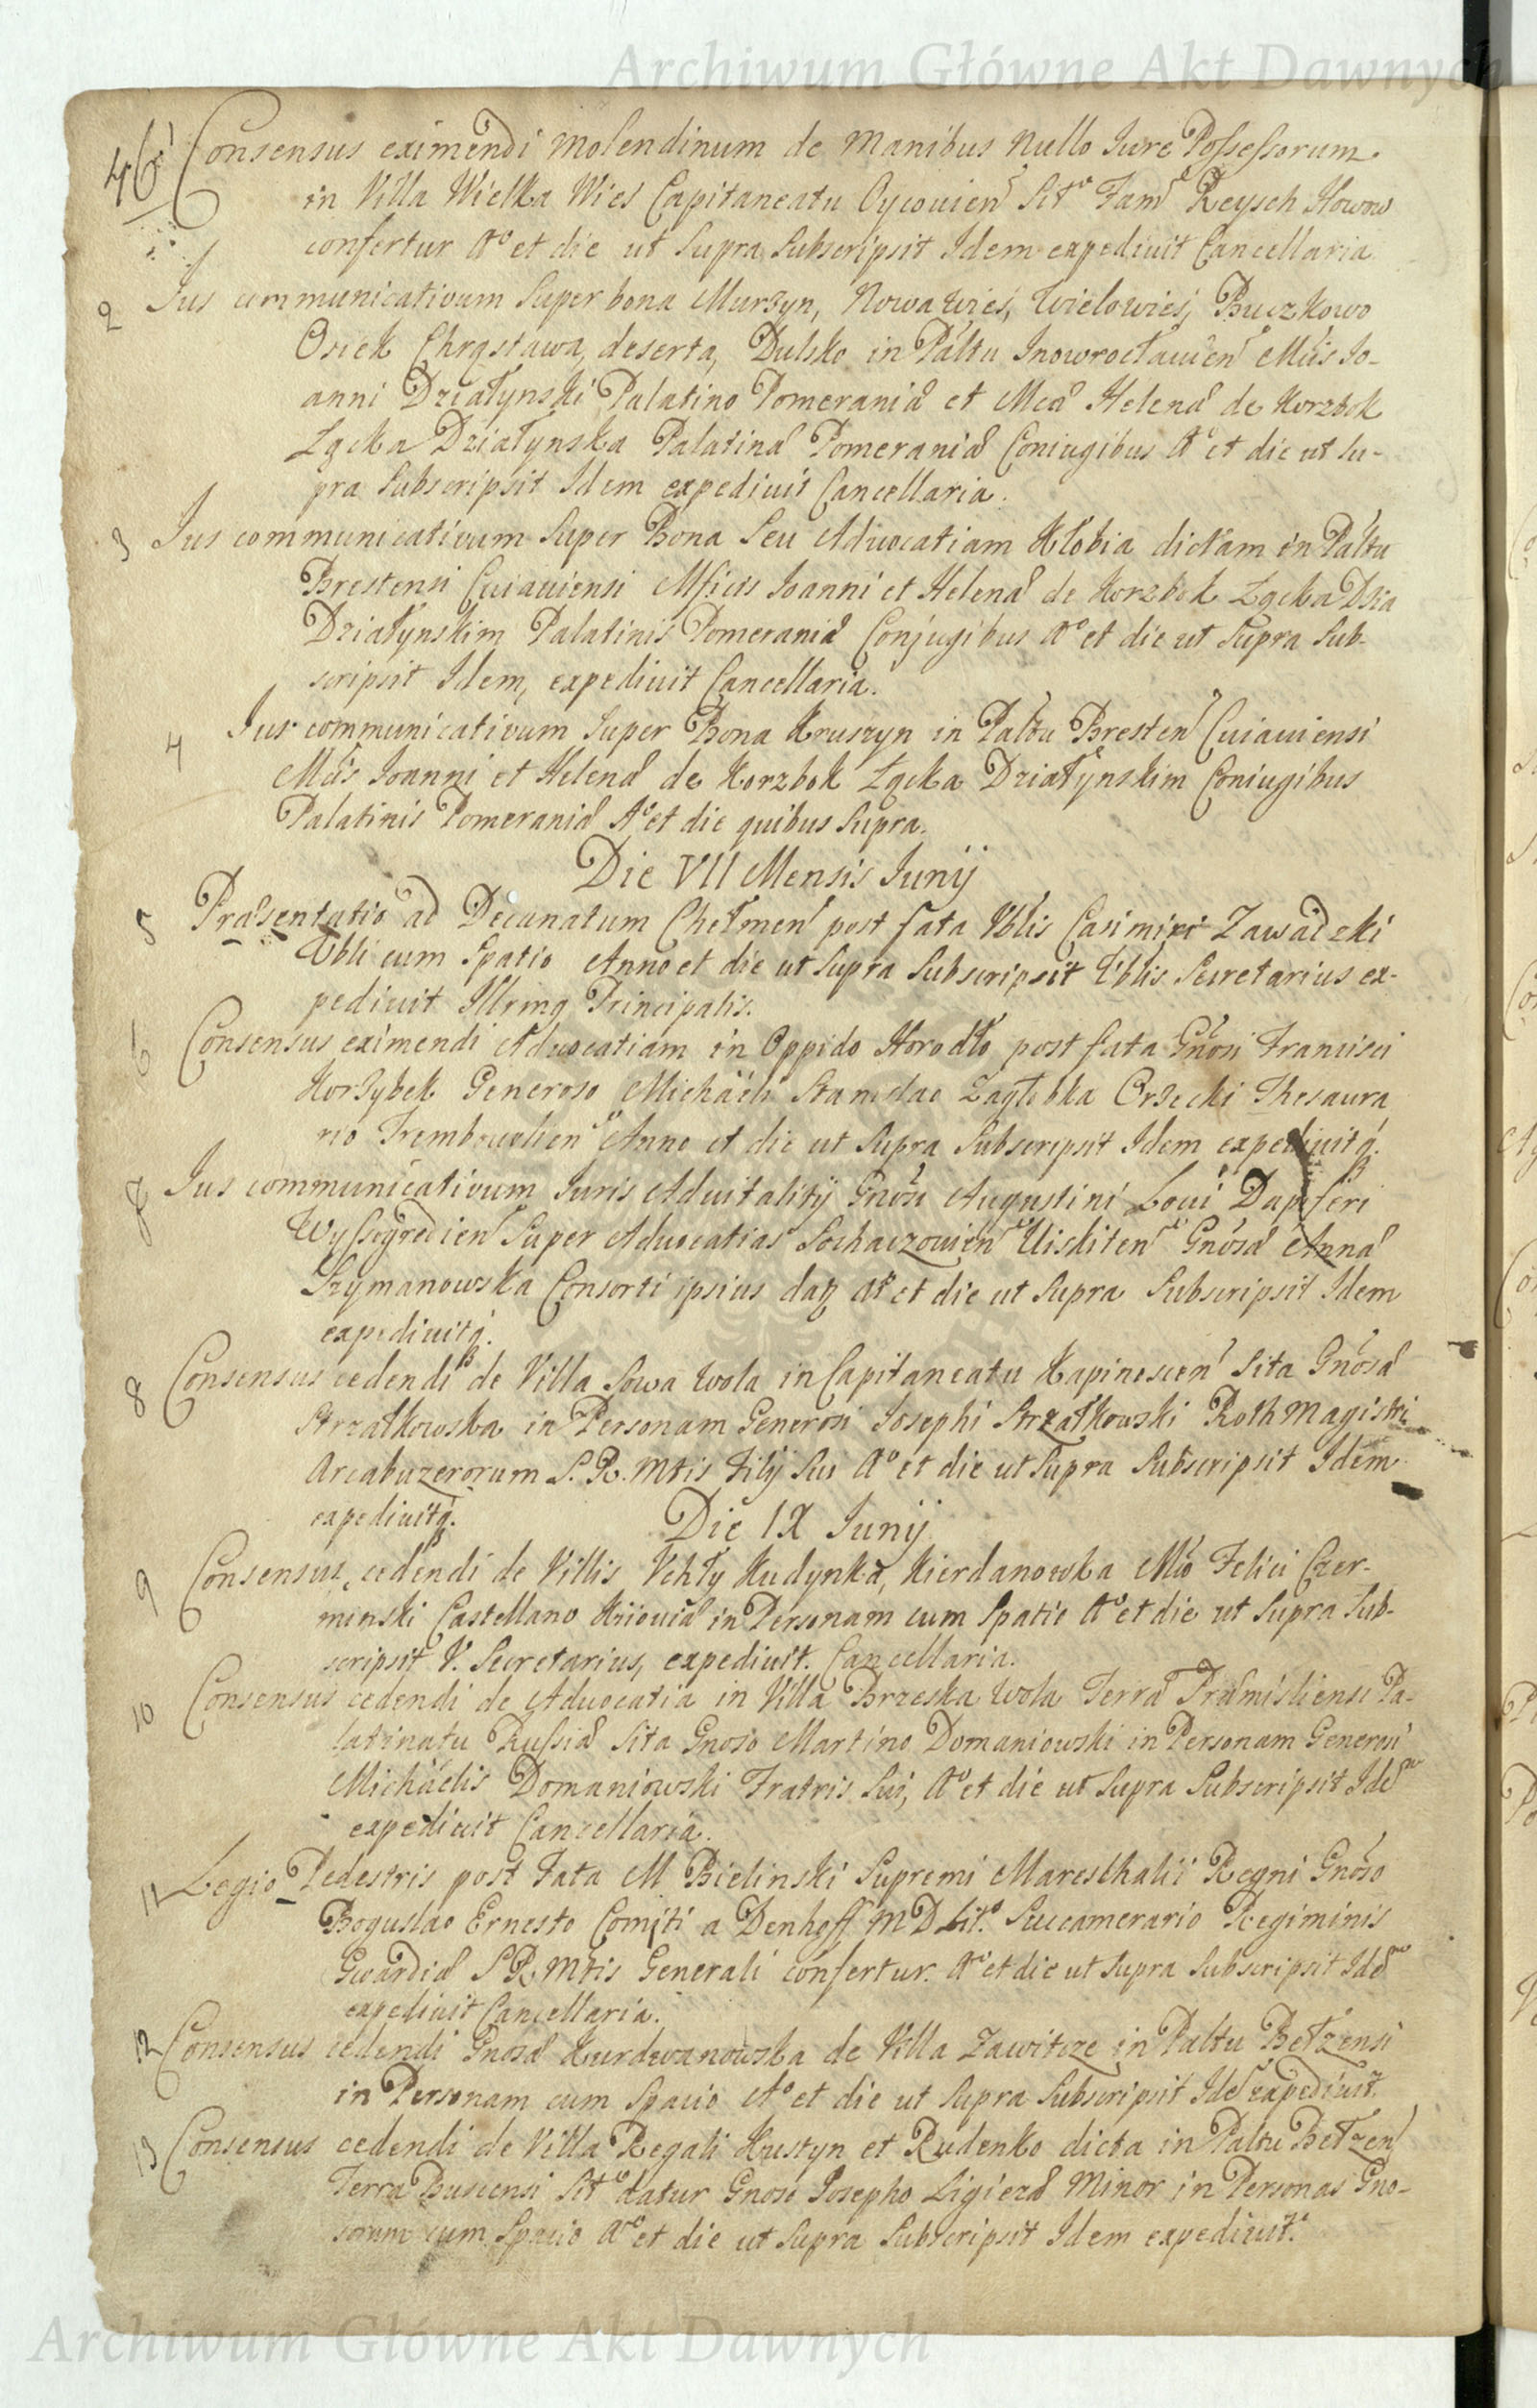 Archiwum Główne Akt Dawnych
46
1 Consensus eximendi Molendinum de Manibus Nullo Iure Possessorum
in Villa Wielka Wies Capitaneatu Oycovien Sit Fam Reysch
confertur Aº et die ut Supra Subscripsit Idem expedivit Cancellaria
2 Ius communicativum Super bona Murzyn, Nowawieś, Wielowieś, Buczkowo
Osiek Chrąstawa, deserta, Dulsko in Paltu Inowrocławien Mcis Io-
anni Działynski Palatino Pomeraniæ et Mcæ Helenæ de Korzbok
Łącka Działynska Palatinæ Pomeraniæ Coniugibus Aº et die ut Su-
pra Subscripsit Idem expedivit Cancellaria.
3 Ius communicativum Super Bona Seu Advocatiam Kłobia dictam in Paltu
Brestensi Cuiaviensi Mficis Ioanni et Helenæ de Korzbok Łącka Dzia
Działynskim Palatinis Pomeraniæ Conjugibus Aº et die ut Supra Sub-
scripsit Idem, expedivit Cancellaria.
4 Ius communicativum Super Bona Kruszyn in Paltu Bresten Cuiaviensi
Mcis Ioanni et Helenæ de Korzbok Łącka Działynskim Coniugibus
Palatinis Pomeraniæ Aº et die quibus Supra.
Die VII Mensis Iunij
5 Præsentatio ad Decanatum Chełmen post fata Vblis Casimiri Zawadzki
Vbli cum Spatio Anno et die ut Supra Subscripsit Vblis Secretarius ex-
pedivit Illrmq Principalis.
6 Consensus eximendi Advocatiam in Oppido Horodło post fata Gnosi Francisci
Korzybek Generoso Michaeli Stanislao Zagłobka Orzecki Thesaura
rio Trembowlien Anno et die ut Supra Subscripsit Idem expedivitq.
7 Ius communicativum Iuris Advitalitij Gnosi Augustini Dapiferi
Wyssogrodien Super Advocatias Sochaczovien Uiskiten Gnosæ Annæ
Szymanowska Consorti ipsius datz Aº et die ut Supra Subscripsit Idem
expedivitq.
8 Consensus cedendi de Villa Sowa Wola in Capitaneatu Kapinoscen Sita Gnosæ
Strzałkowska in Personam Generosi Iosephi Strzałkowski Rothmagistri
Arcabuzerorum S. R. Mtis Filij Sui Aº et die ut Supra Subscripsit Idem
expedivitq. Die IX Iunij
9 Consensus cedendi de Villis Kudynka, Kierdanowska Mco Felici Czer-
minski Castellano Kijoviæ in Personam cum Spatio Aº et die ut Supra Sub-
scripsit V. Secretarius, expedivit. Cancellaria.
10 Consensus cedendi de Advocatia in Villa Brzeska Wola Terra Præmisliensi Pa-
latinatu Russiæ Sita Gnoso Martino Domaniowski in Personam Generosi
Michaelis Domaniowski Fratris Sui, Aº et die ut Supra Subscripsit Idem
expedivit Cancellaria.
11 Legio Pedestris post Fata M Bielinski Supremi Mareschalii Regni Gnoso
Boguslao Ernesto Comiti a Denhoff M D Lit. Succamerario Regiminis
Gwardiæ S R Mtis Generali confertur. Aº et die ut Supra Subscripsit Idem
expedivit Cancellaria.
12 Consensus cedendi Gnosæ Kurdwanowska de Villa Zawitcze in Paltu Bełzensi
in Personam cum Spacio Aº et die ut Supra Subscripsit Idem expedivit.
13 Consensus cedendi de Villa Regali Hustyn et Rudenko dicta in Paltu Bełzen
Terra Buscensi Sit datur Gnoso Iosepho Ligieza Minor in Personas Gno-
sorum cum Spacio Aº et die ut Supra Subscripsit Idem expedivit.
Archiwum Główne Akt Dawnych